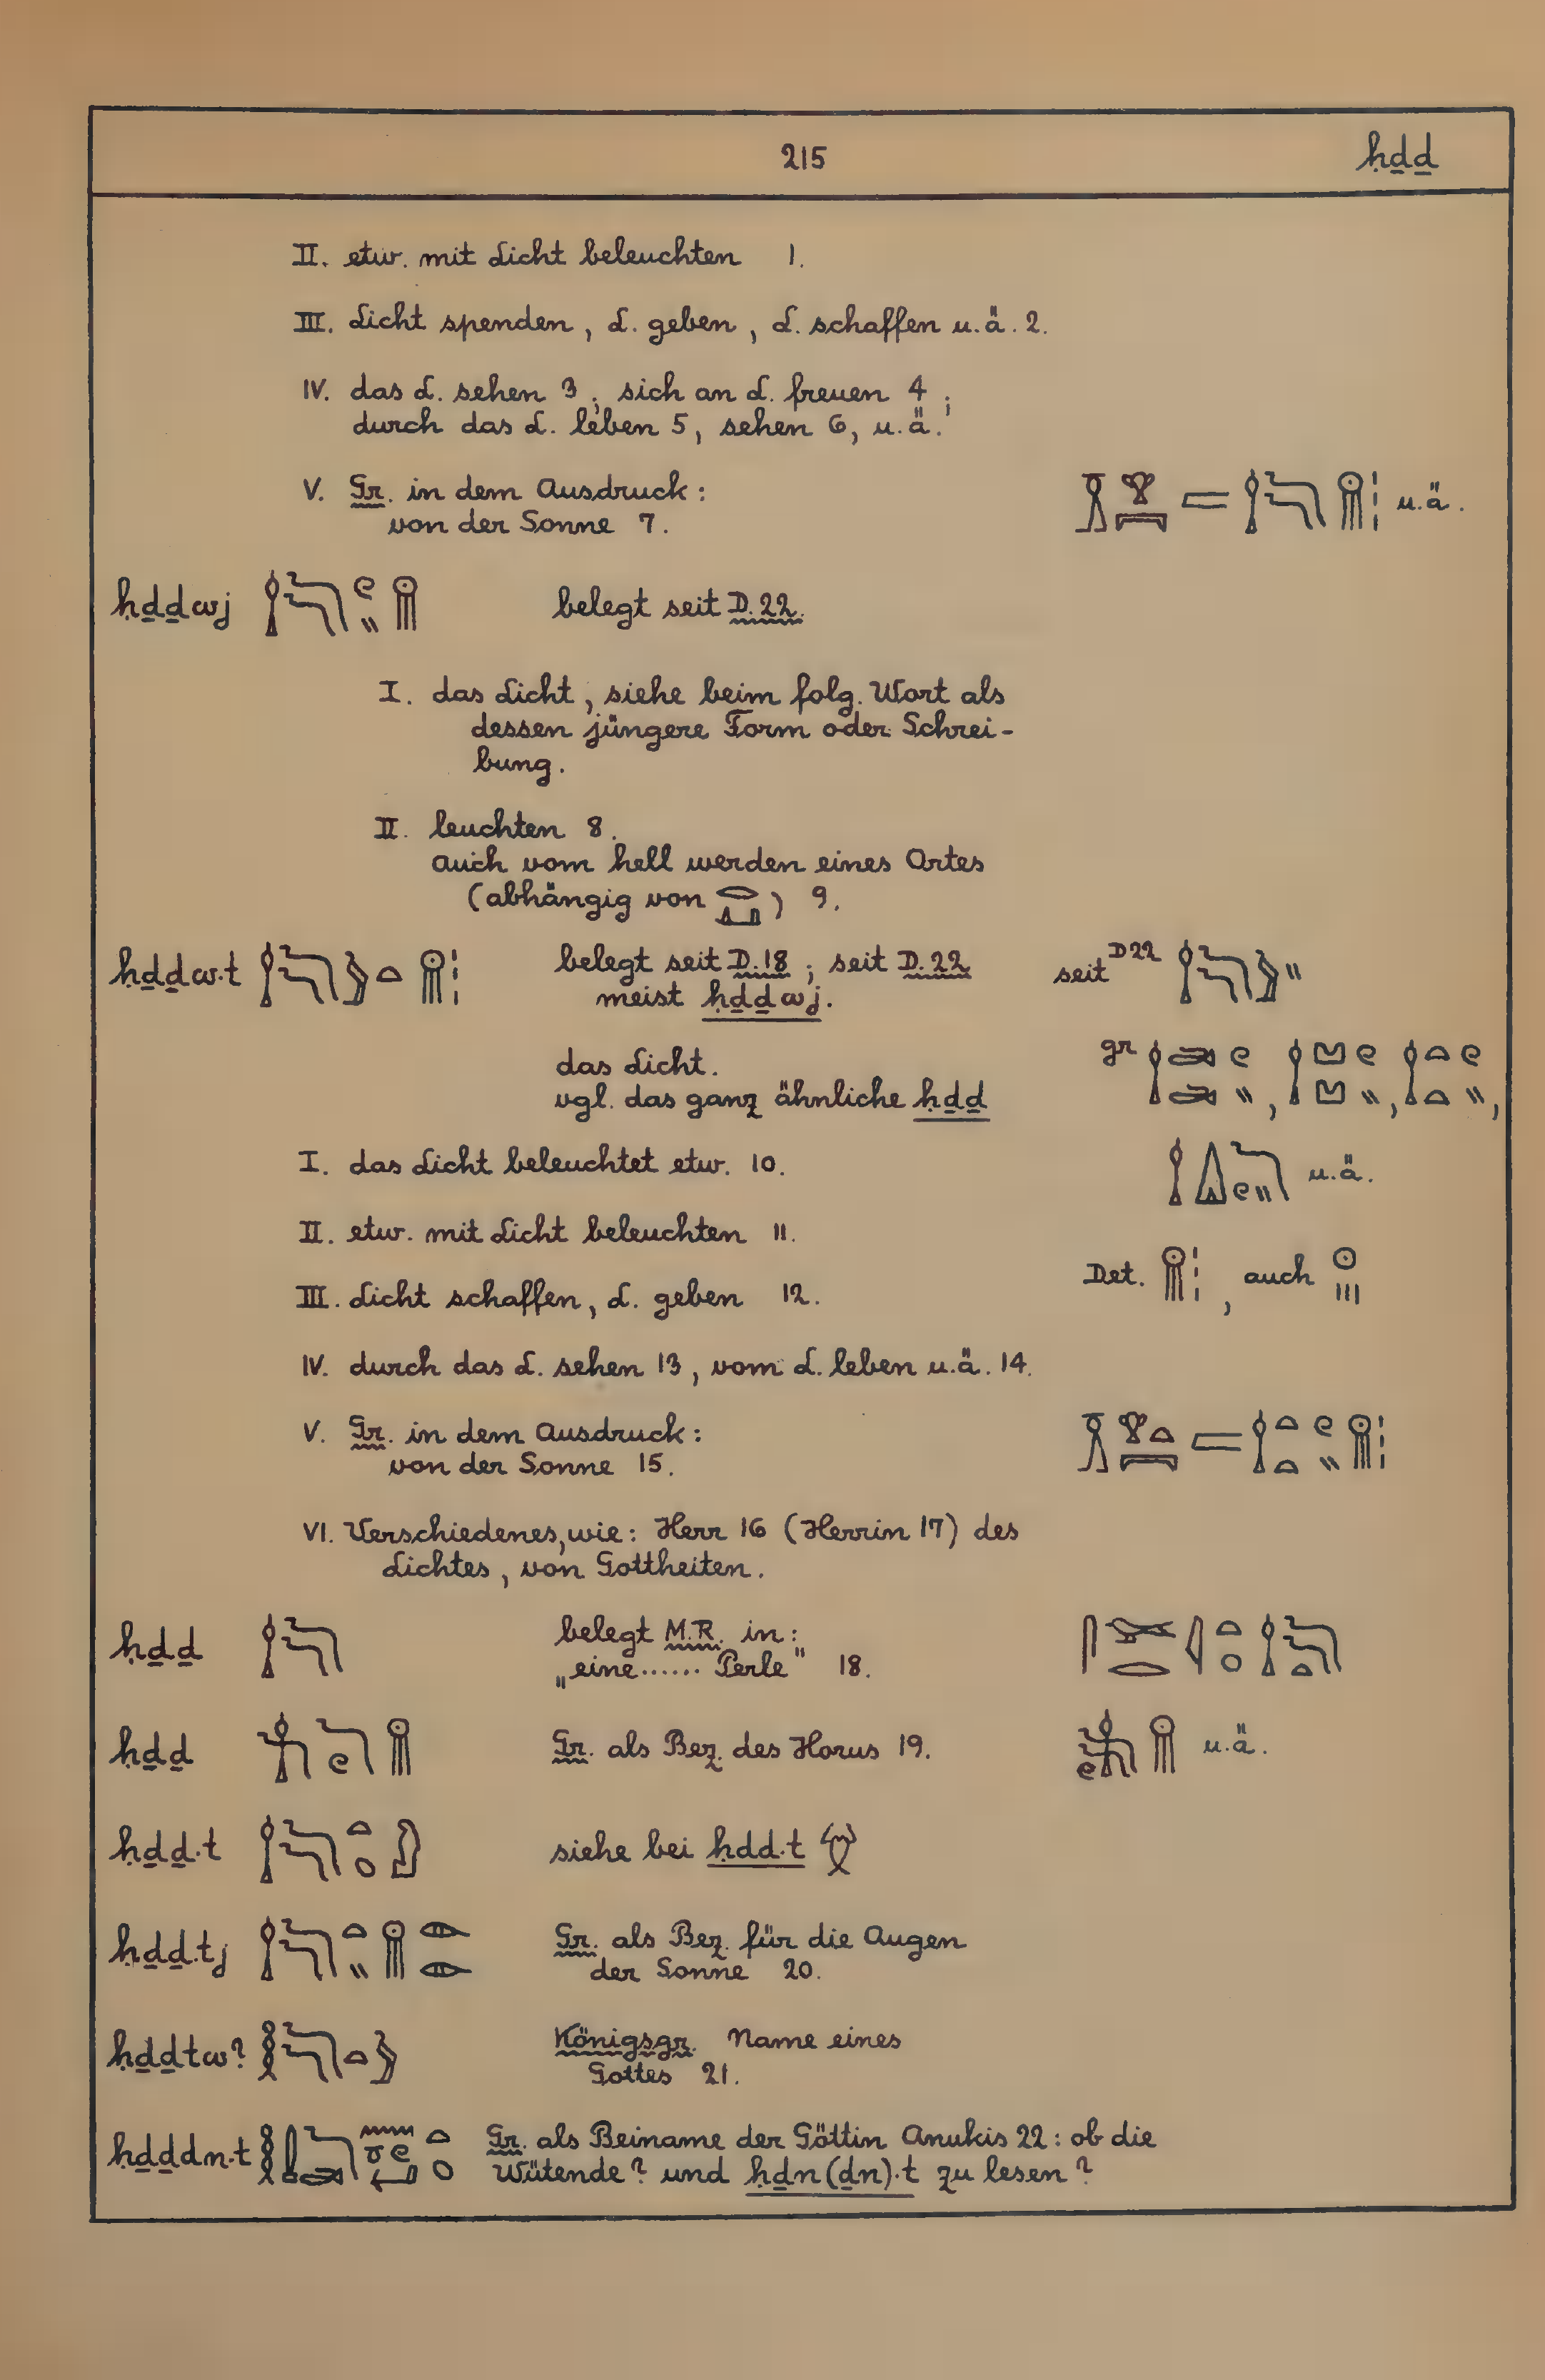 215 ḥḏḏ
II. etw. mit Licht beleuchten 1.
III. Licht spenden, L. geben, L. schaffen u.ä. 2.
IV. das L. sehen 3; sich an L. freuen 4;
durch das L. leben 5, sehen 6, u.ä.
V. Gr. in dem Ausdruck: u.ä.
von der Sonne 7.
ḥḏḏwj belegt seit D.22.
I. das Licht, siehe beim folg. Wort als
dessen jüngere Form oder Schrei-
bung.
II. leuchten 8.
auch vom hell werden eines Ortes
(abhängig von ) 9.
ḥḏḏw.t belegt seit D.18; seit D.22 seit D22
meist ḥḏḏwj.
das Licht. gr
vgl. das ganz ähnliche ḥḏḏ
I. das Licht beleuchtet etw. 10. u.ä.
II. etw. mit Licht beleuchten 11.
III. Licht schaffen, L. geben 12. Det. , auch
IV. durch das L. sehen 13, vom L. leben u.ä. 14.
V. Gr. in dem Ausdruck:
von der Sonne 15.
VI. Verschiedenes, wie: Herr 16 (Herrin 17) des
Lichtes, von Gottheiten.
ḥḏḏ belegt M.R. in:
„eine...... Perle" 18.
ḥḏḏ Gr. als Bez. des Horus 19. u.ä.
ḥḏḏ.t siehe bei ḥdd.t
ḥḏḏ.tj Gr. als Bez. für die Augen
der Sonne 20.
ḥḏḏtw? Königsgr. Name eines
Gottes 21.
ḥḏḏḏn.t Gr. als Beiname der Göttin Anukis 22: ob die
Wütende? und ḥḏn(ḏn).t zu lesen?